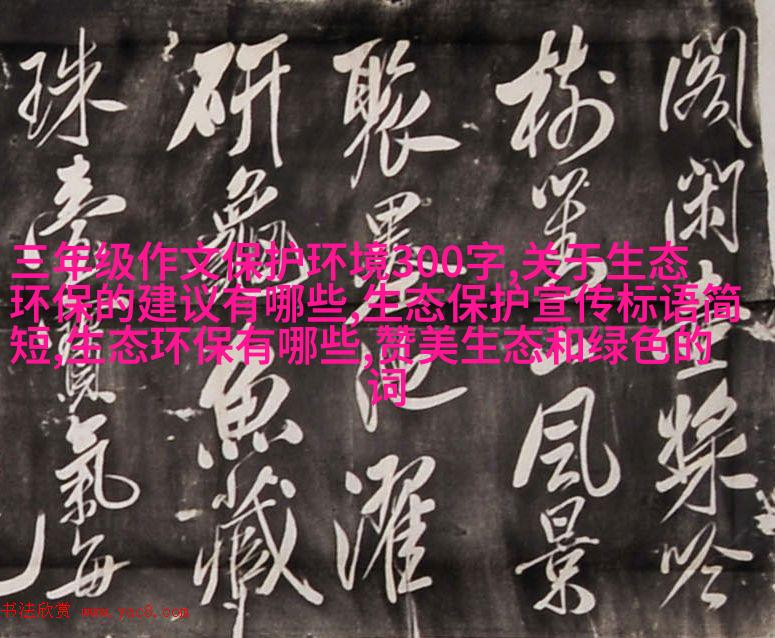 三年级作文保护环境300字,关于生态
环保的建议有哪些,生态保护宣传标语简
短,生态环保有哪些,赞美生态和绿色的
词
閣閑吟
樹對風景
聚墨池濯
研魚藏
珠氣每
书法欣赏 www.yac8.com